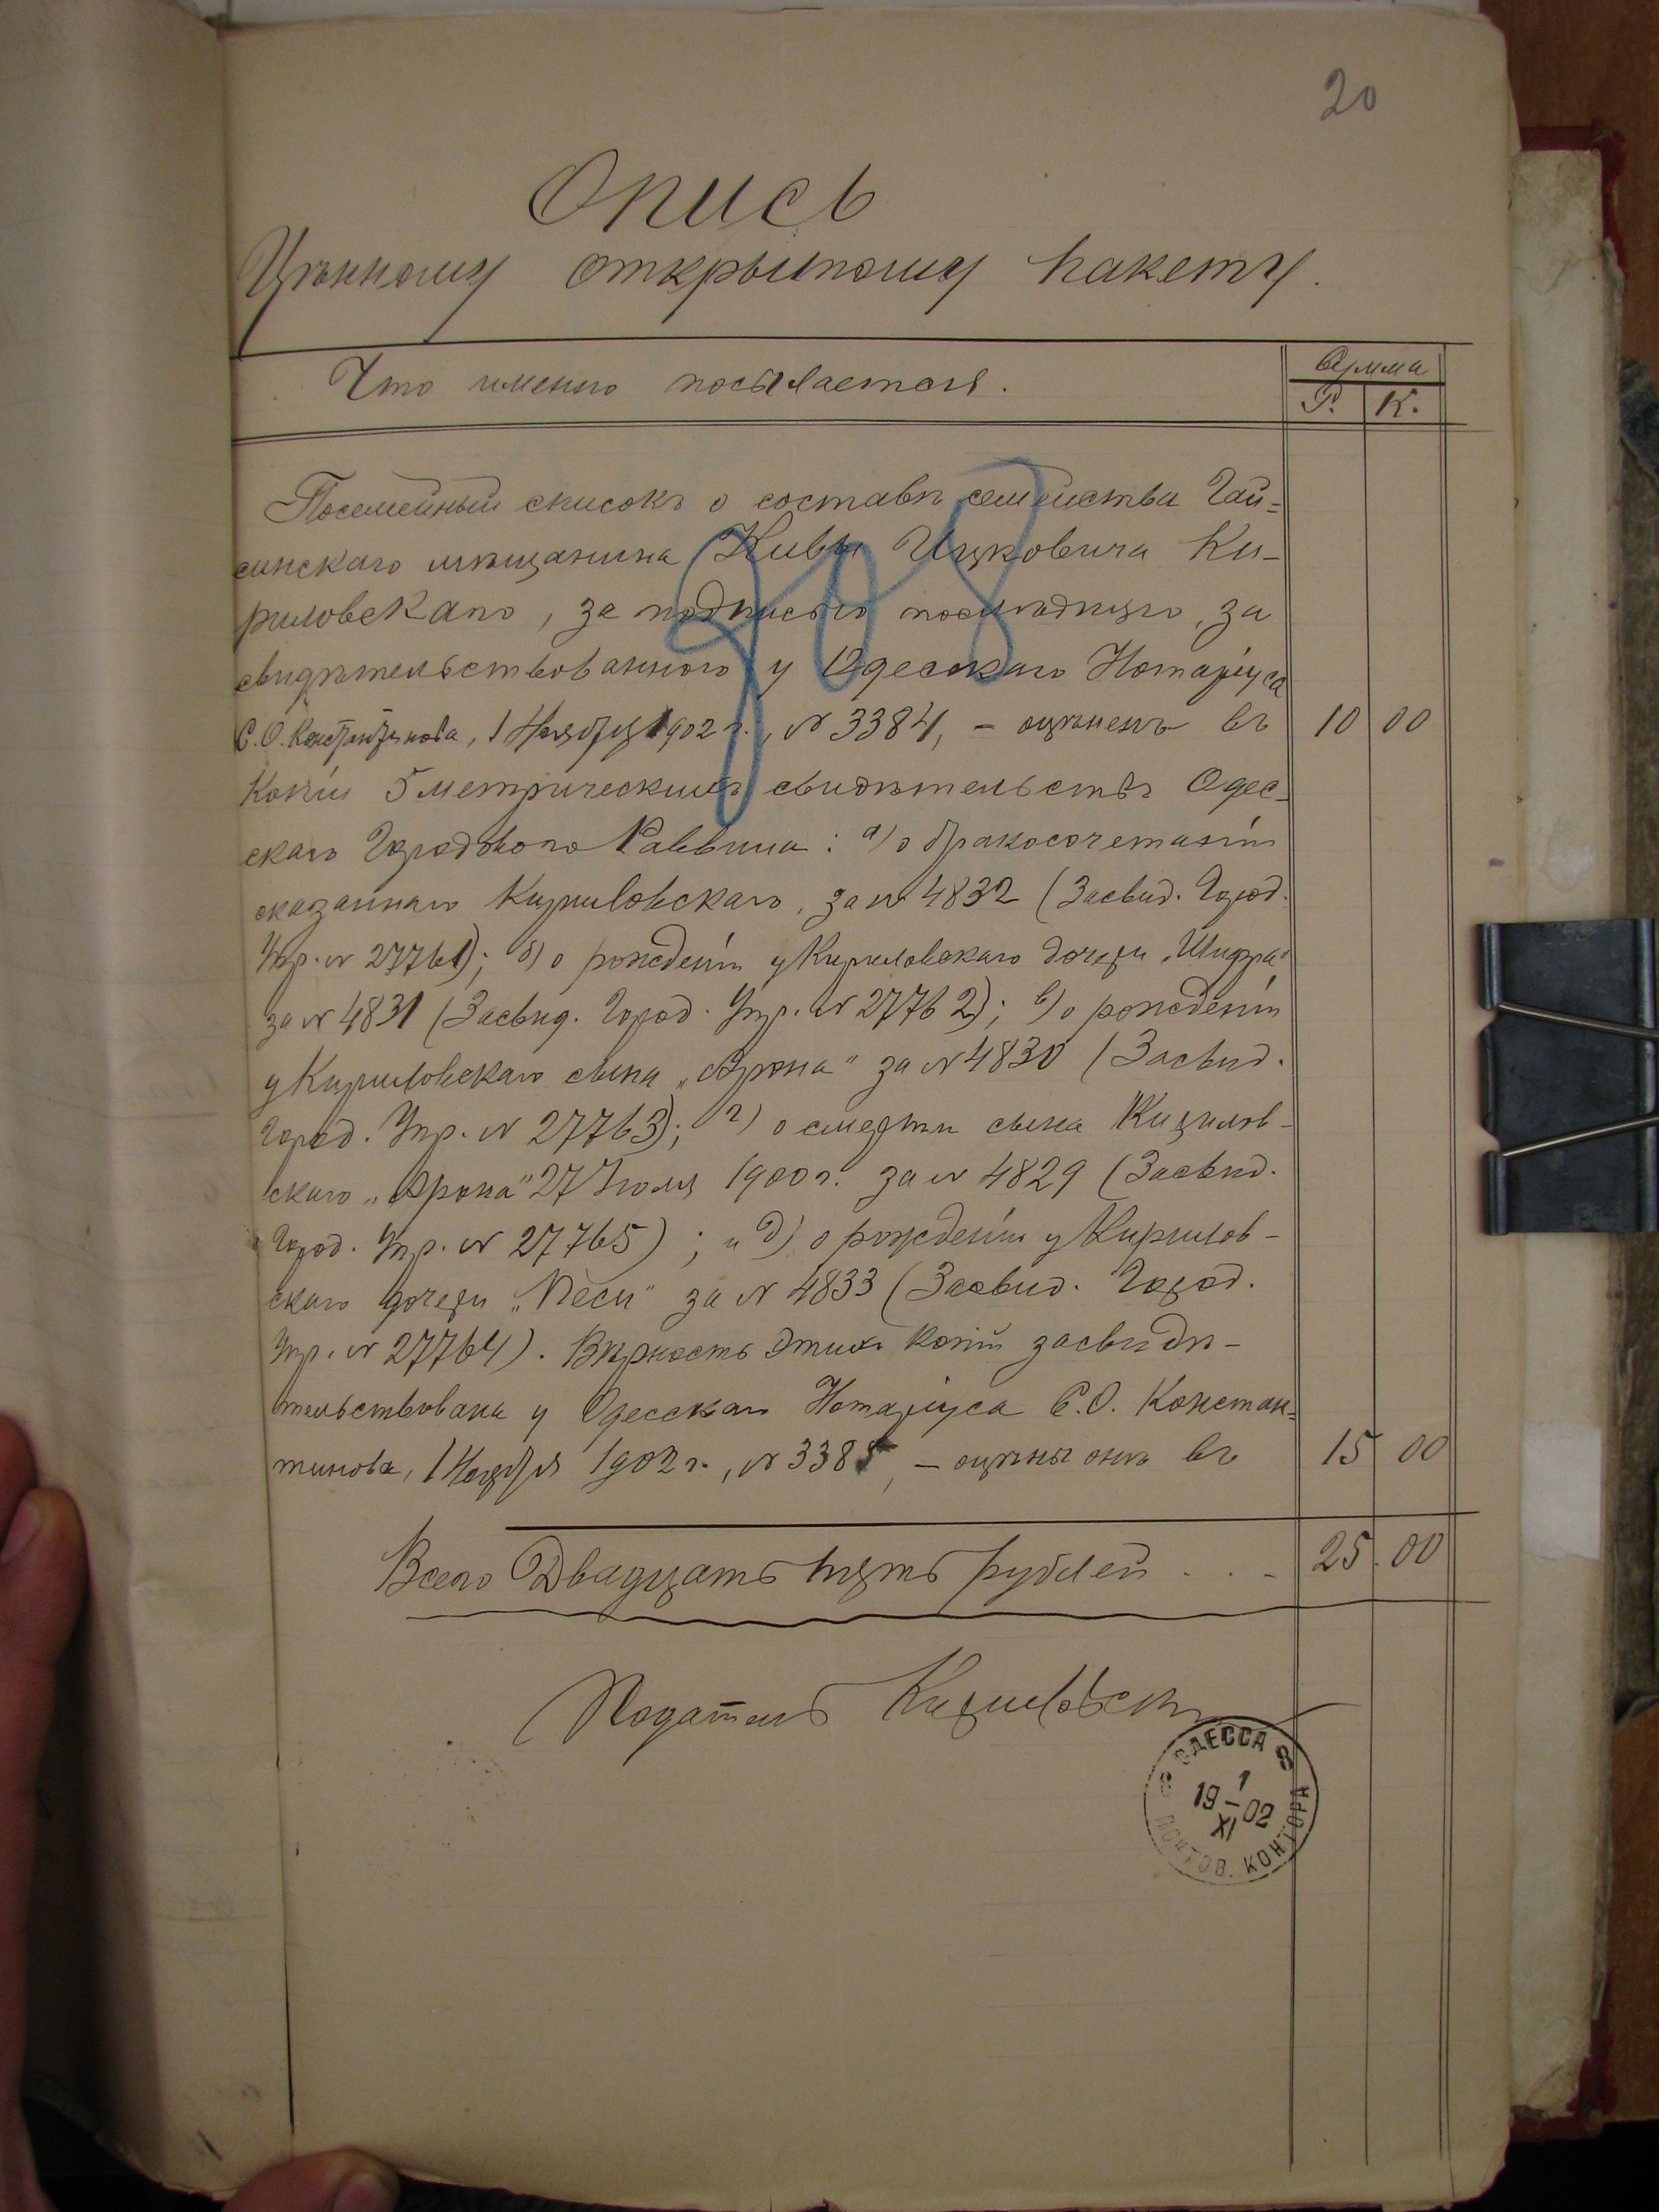 20
Опись
Цѣнному открытому пакету.
Что именно посылается.
Сумма
Р. К.
Посемейный списокъ о составѣ семейства Гай=
синскаго мѣщанина Кивы Ицковича Ки-
риловскаго, за подписью послѣдняго, за
свидѣтельствованного у Одесскаго Нотаріуса
С.О. Константинова, 1 Ноября 1902 г., № 3384, - оцѣненъ въ 10 00
Копіи 5 метрическихъ свидѣтельствъ Одес-
скаго Городового Раввина: а) о бракосочетаніи
сказаннаго Кириловскаго, за № 4832 (Засвид. Город.
Упр. № 27761); б) о рожденіи у Кириловскаго дочери „Шифра"
за № 4831 (Засвид. Город. Упр. № 27762); в) о рожденіи
у Кириловскаго сына „Арона" за № 4830 (Засвид.
Город. Упр. № 27763); г) о смерти сына Кирилов-
скаго „Арона" 27 Іюля 1900 г. за № 4829 (Засвид.
Город. Упр. № 27765); и д) о рожденіи у Кирилов-
скаго дочери „Песи" за № 4833 (Засвид. Город.
Упр. № 27764). Вѣрность этихъ копій засвидѣ-
тельствована у Одесскаго Нотаріуса С.О. Констан=
тинова, 1 Ноября 1902 г., № 3385, - оцѣны онѣ въ 15 00
Всего Двадцать пять рублей . . - 25.00
Податель Кириловскій
ОДЕССА 8
1
19-02
XI
ПОЧТОВ. КОНТОРА